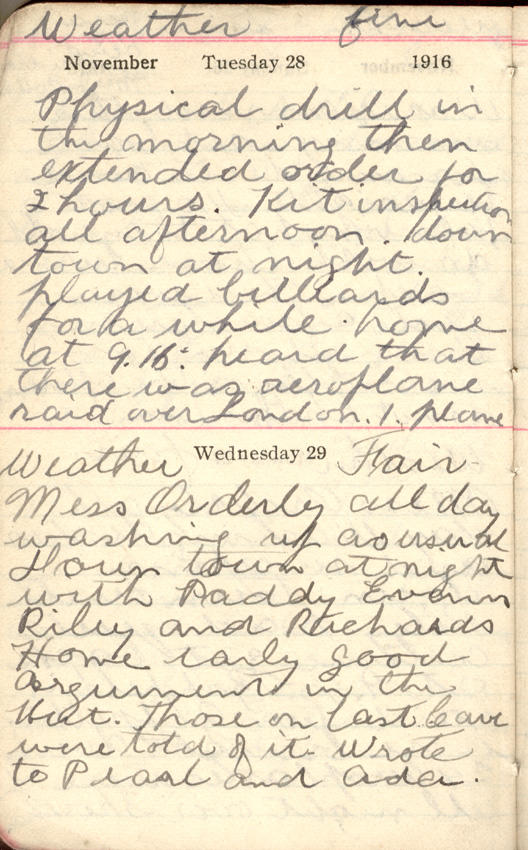 Weather fine
November Tuesday 28 1916
Physical drill in
the morning then
extended order for
2 hours. Kit inspection
all afternoon. down
town at night.
played billiards
for a while. home
at 9.15. heard that
there was aeroplane
raid over London. 1. plane
Weather Wednesday 29 Fair
Mess Orderly all day
washing up as usual
Down town at night
with Paddy Evans
Riley and Richards
Home early good
arguments in the
Hut. Those on last leave
were told of it. Wrote
to Pearl and Ada.